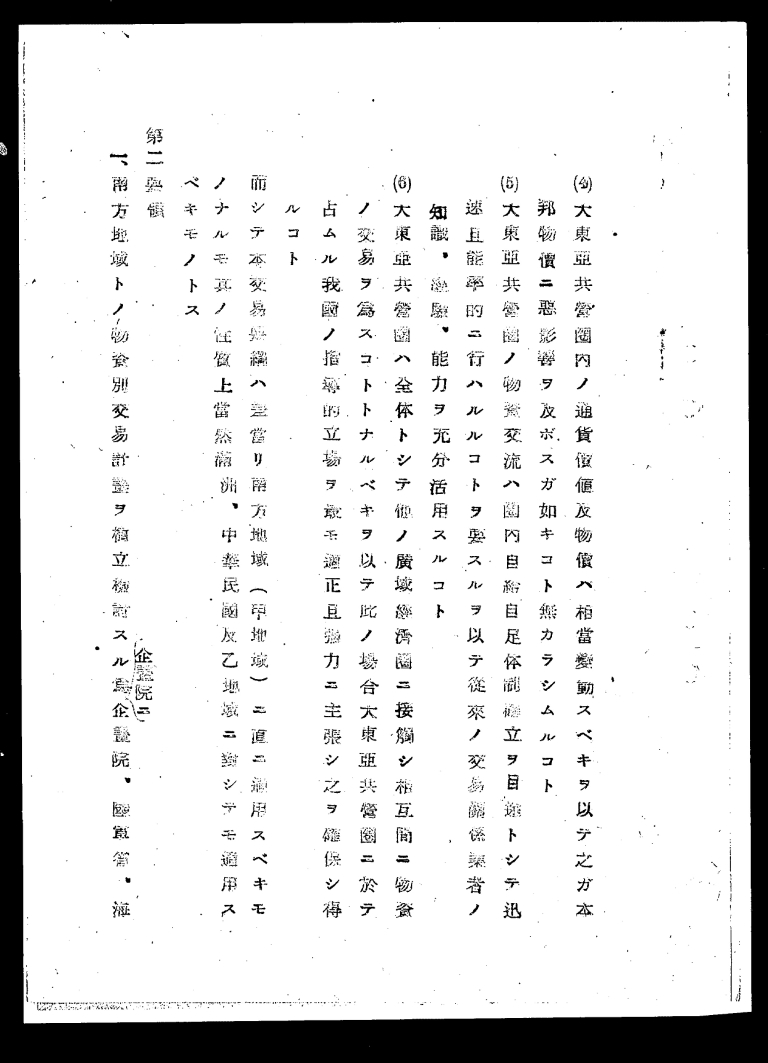 (4)大東亞共營圈内ノ通貨價値及物價ハ相當變動スベキヲ以テ之ガ本
邦物價ニ惡影響ヲ及ボスガ如キコト無カラシムルコト
(5)大東亞共營圈ノ物資交流ハ圈内自給自足体制確立ヲ目途トシテ迅
速且能率的ニ行ハルルコトヲ要スルヲ以テ從來ノ交易關係業者ノ
知識、經驗、能力ヲ充分活用スルコト
(6)大東亞共營圈ハ全体トシテ他ノ廣域經濟圈ニ接觸シ相互間ニ物資
ノ交易ヲ爲スコトトナルベキヲ以テ此ノ場合大東亞共營圈ニ於テ
占ムル我國ノ指導的立場ヲ最モ適正且強力ニ主張シ之ヲ確保シ得
ルコト
而シテ本交易要綱ハ差當リ南方地域(甲地域)ニ直ニ適用スベキモ
ノナルモ其ノ性質上當然滿洲、中華民國及乙地域ニ對シテモ適用ス
ベキモノトス
第二 要領
一、南方地域トノ物資別交易計畫ヲ樹立檢討スル爲企畫院、陸軍省、海
企畫院ニ